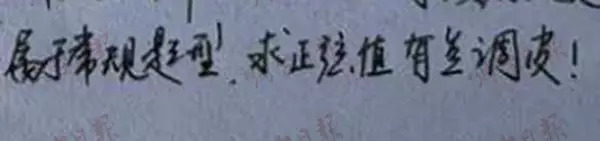 属于常规题型,求正弦值有些调皮!